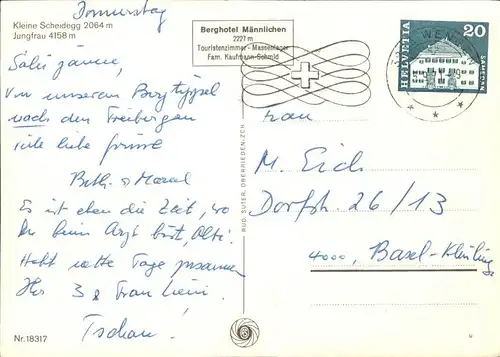 Donnerstag
Kleine Scheidegg 2064 m
Jungfrau 4158 m
Berghotel Männlichen
2227 m
Touristenzimmer - Massenlager
Fam. Kaufmann-Schmid
HELVETIA
20
SAMEDAN
WEN
Salü
Von unserem
nach den Freibergen
viele liebe grüsse
Beth. & Marcel
Es ist eben die Zeit, wo
Du beim Arzt bist,
Habt nette Tage zusammen
3 & Frau
Tschau!
Frau
M. Eich
Dorfstr. 26/13
4000, Basel-
RUD. SUTER, OBERRIEDEN-ZCH
Nr. 18317